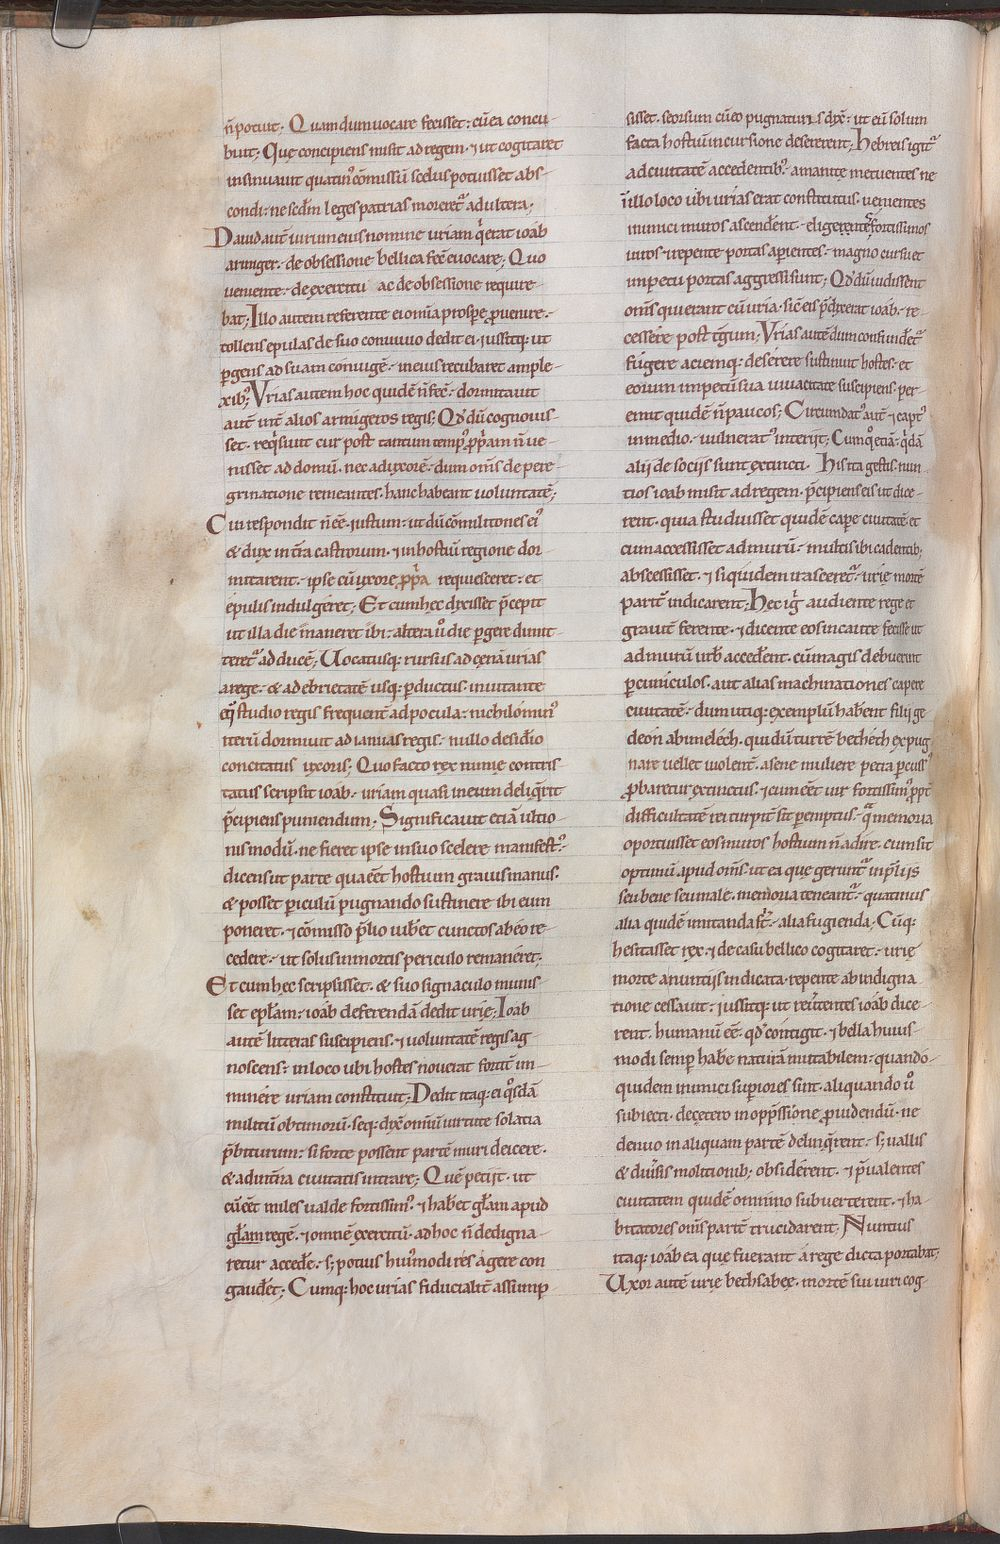 n̄ potuit; Quam dum uocare fecisset: cū ea concu-
buit; Que concipiens misit ad regem. ⁊ ut cogitaret
insinuauit quatin᾽ cōmissū scelus potuisset abs-
condi. ne scd̄m leges patrias moreret᷑ adultera;
Dauid aut̄ uirum eius nomine uriam q̇ erat ioab
armiger. de obsessione bellica fec̄ euocare; Quo
ueniente. de exercitu ac de obsessione require-
bat; Illo autem referente ei om̄ia prospe ꝓuenire.
tollens epulas de suo conuiuio dedit ei. iussitq: ut
ꝑgens ad suam coniugē. in eius recubaret ample-
xib᾽; Vrias autem hoc quidē n̄ fec̄. dormitauit
aut̄ int̄ alios armigeros regis; Qd̄ dū cognouis-
set. reqͥsiuit cur post tantum temp᾽ ꝓpͥam n̄ ue-
nisset ad domū. nec ad uxorē. dum om̄s de pere-
grinatione remeantes. hanc habeant uoluntatē;
Cui respondit n̄ eē. iustum. ut dū cōmilitones ei᾽
& dux in cͣ̄a castrorum. ⁊ in hostiū regione dor-
mitarent. ipse cū uxore ꝓpͥa requiesceret. et
epulis indulgeret; Et cum hec dixisset p̄cepit
ut illa die maneret ibi. altera ů die ꝑgere dimit-
teret᷑ ad ducē; Uocatusq: rursus ad cenā urias
a rege. & ad ebrietatē usq: ꝑductus. inuitante
eū studio regis frequent̄ ad pocula. nichilomin᾽
iterū dormiuit ad ianuas regis. nullo desid̄io
concitatus uxoris; Quo facto rex nimie contris-
tatus scripsit ioab. uriam quasi in eum deliq̄rit
p̄cipiens puniendum; Significauit etiā ultio-
nis modū. ne fieret ipse in suo scelere manifest᾽.
dicens ut parte qua eēt hostium grauis manus.
& posset ꝑiculū pugnando sustinere ibi eum
poneret. ⁊ cōmisso p̄lio iub̄et cunctos ab eo re-
cedere. ut solus in mortis periculo remaneret.
Et cum hec scripsisset. & suo signaculo munis-
set ep̄lam. ioab deferendā dedit urie; Ioab
autē litteras suscipiens. ⁊ uoluntatē regis ag-
noscens. in loco ubi hostes nouerat fortit̄ im-
minere uriam constituit; Dedit itaq: ei qͦsdā
militū obtimorū. seq: dix̄ om̄iū uirtute solatia
p̄biturum. si forte possent partē muri deicere.
& adunc̄ta ciuitatis intrare; Quē petijt. ut
cū eēt miles ualde fortissim᾽. ⁊ hab̄et gl̄am apud
gl̄am regē. ⁊ omnē exercitū. ad hoc n̄ dedigna-
retur acced̄e. s; potius hui᾽modi res agere con
gaud̄et; Cumq: hoc urias fiducialit̄ assump-
sisset. seorsum cū eo pugnaturis dix̄. ut eū solum
facta hostiū incursione desererent; Hebreis igit᷑
ad ciuitatē accedentib᾽. amanite metuentes ne
in illo loco ubi urias erat constitutus. uenientes
inimici muros ascend̄ent. eligentes fortissimos
uiros. ⁊ repente portas aperientes. magno cursu et
impetu portas aggressi sunt; Qd̄ dū uidissent
om̄s qui erant cū uria. sic̄ eis p̄dixerat ioab. re-
cessere post t̄gum; Vrias autē dum confund̄et᷑
fugere aciemq: deserere sustinuit hostes. et
eorum impetū sua uiuacitate suscipiens. per-
emit quidē n̄ paucos; Circumdat᾽ autē ⁊ capt᾽
in medio. uulnerat᾽ interijt; Cum qͦ etiā. qͥdā
alij de socijs sunt extincti. His ita gestis. nun-
tios ioab misit ad regem. p̄cipiens eis ut dice-
rent. quia studuisset quidē capere ciuitatē. et
cum accessisset ad murū. multis ibi cadentib;
abscessisset. ⁊ si quidem irasceret᷑. urie mortē
parit̄ indicarent; Hec iḡ audiente rege et
grauit̄ ferente. ⁊ dicente eos incaute fecisse ut
ad murū urb̄ acced̄ent. cū magis debuerint
ꝑ cuniculos. aut alias machinationes capere
ciuitatē. dum utiq: exemplū hab̄ent filij ge-
deon abimelech. qui dū turrē bethech expug-
nare uellet uiolent̄. a sene muliere petra ꝑcuss᾽
ꝓbaretur extinctus. ⁊ cum eēt uir fortissim᾽ ꝓpt̄
difficultatē rei turpit̄ sit ꝑemptus. qͣ memoria
oportuisset eos muros hostium n̄ adire. cum sit
optimū. apud om̄s. ut ea que gerunt᷑ in p̄lijs
seu bene seu male. memoria teneant᷑. quatinus
alia quidē imitanda st̄. alia fugienda; Cūq:
hesitasset rex. ⁊ de casu bellico cogitaret. urie
morte a nuntijs indicata. repente ab indigna-
tione cessauit. iussitq: ut reūtentes ioab dice-
rent. humanū eē. qd̄ contigit. ⁊ bella huius-
modi semp habe naturā mutabilem. quando
quidem inimici superiores sint. aliquando ů
subiecti. decetero in opp̄ssione ꝓuidendū. ne
denuo in aliquam partē delinq̄rent. s; uallis
& diūsis molitionib; obsiderent. ⁊ p̄ualentes
ciuitatem quidē omnino subuerterent. ⁊ ha-
bitatores om̄s parit̄ trucidarent; Nuntius
itaq: ioab ea que fuerant a rege dicta portabat;
Uxor autē urie bethsabee. mortē sui uiri cog-